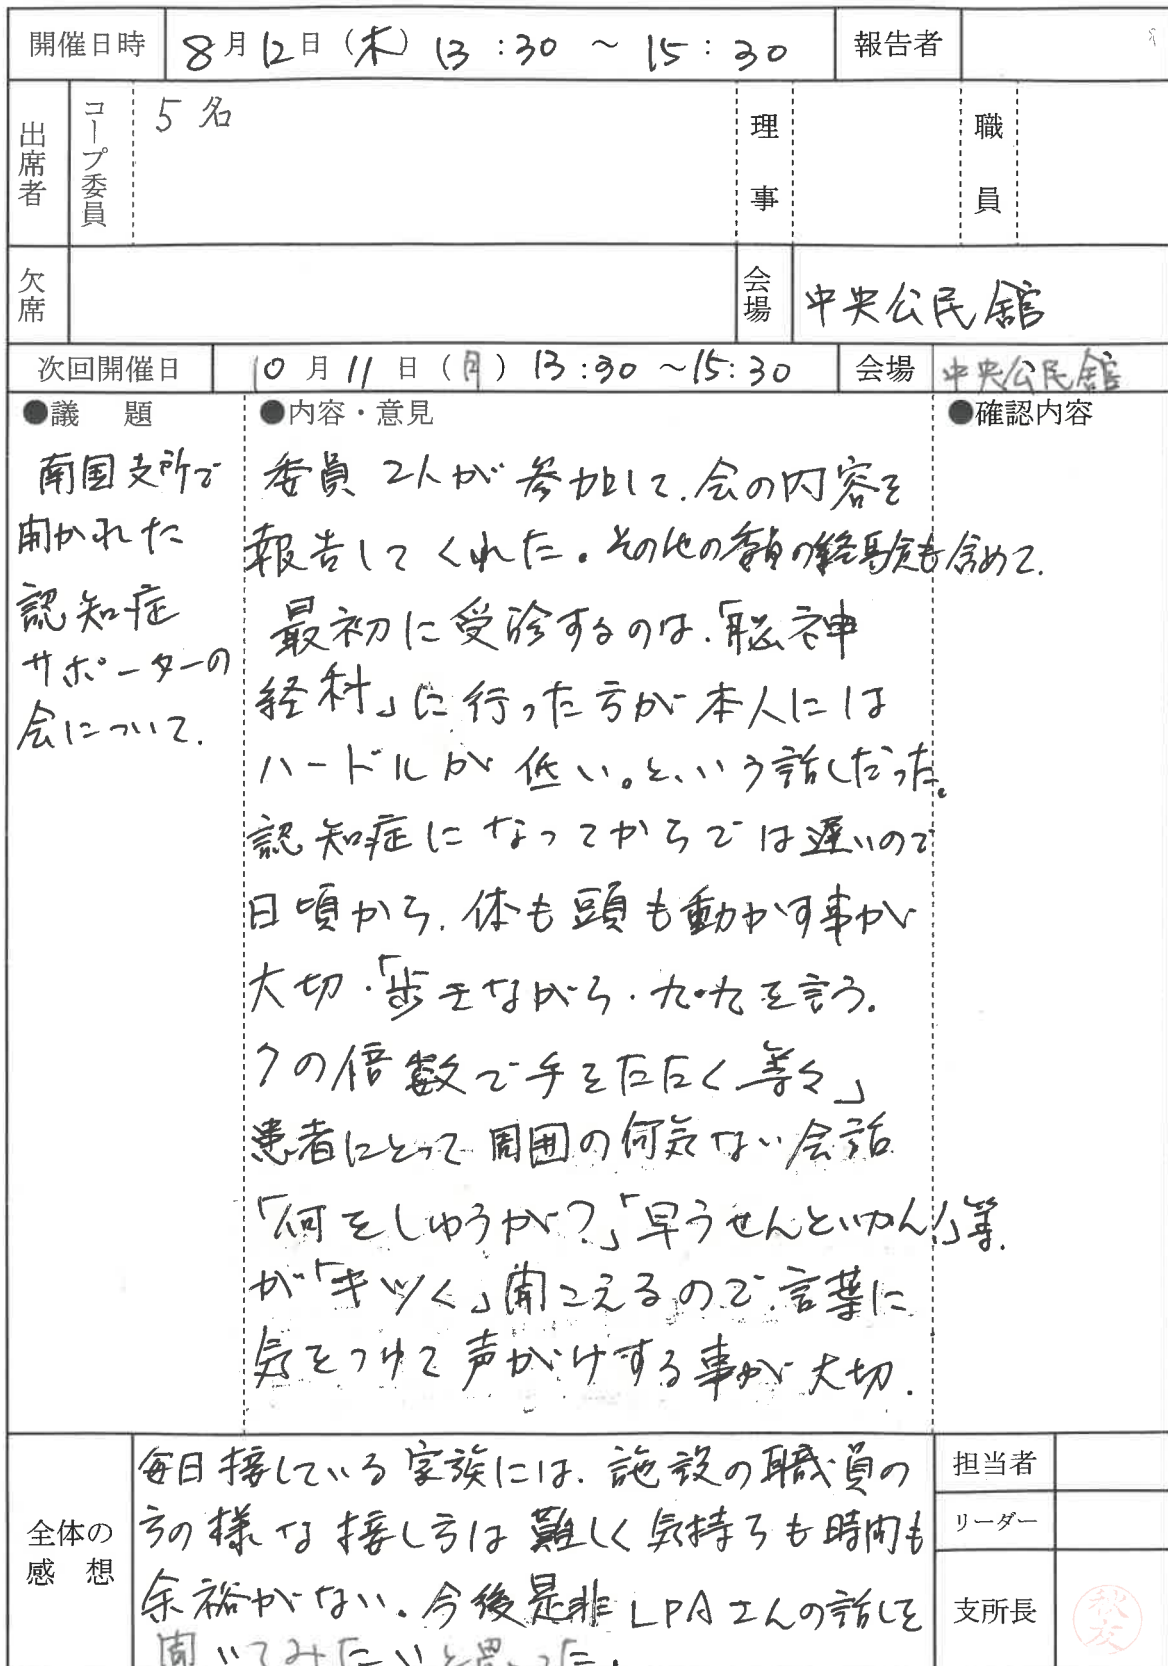 開催日時 8月12日(木) 13:30 ~ 15:30 報告者
出席者 コープ委員 5名 理事 職員
欠席 会場 中央公民舘
次回開催日 10月11日(月) 13:30 ~15:30 会場 中央公民舘
●議 題
南国支所で
開かれた
認知症
サポーターの
会について.
●内容・意見
委員 2人が参加して、会の内容を
報告してくれた。その他の委員の経験も含めて、
最初に受診するのは、「脳神
経科」に行った方が本人には
ハードルが低い。と、いう話しだった。
認知症になってからでは遅いので
日頃から、体も頭も動かす事が
大切・「歩きながら・九・九を言う。
7の倍数で手をたたく 等々」
患者にとって周囲の何気ない会話
「何をしゅうが?」「早うせんといかん!」等、
が「キツく」聞こえるので、言葉に
気をつけて声がけする事が大切.
●確認内容
全体の
感 想
毎日接している家族には、施設の職員の
方の様な接し方は難しく気持ちも時間も
余裕がない。今後是非LPAさんの話しを
聞いてみたいと思った。
担当者
リーダー
支所長